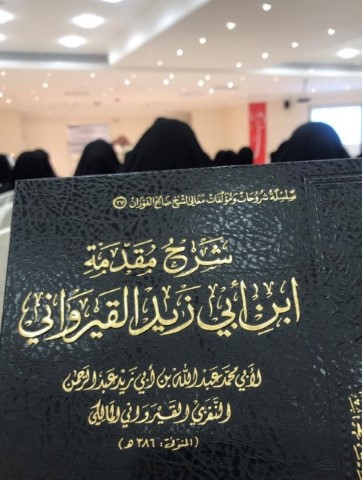 سلسلة شروحات ومؤلفات معالي الشيخ صالح الفوزان (٢٧)
شرح مقدمة
ابن أبي زيد القيرواني
لأبي محمد عبد الله بن أبي زيد عبد الرحمن
النفزي القيرواني المالكي
(المتوفى: ٣٨٦هـ)